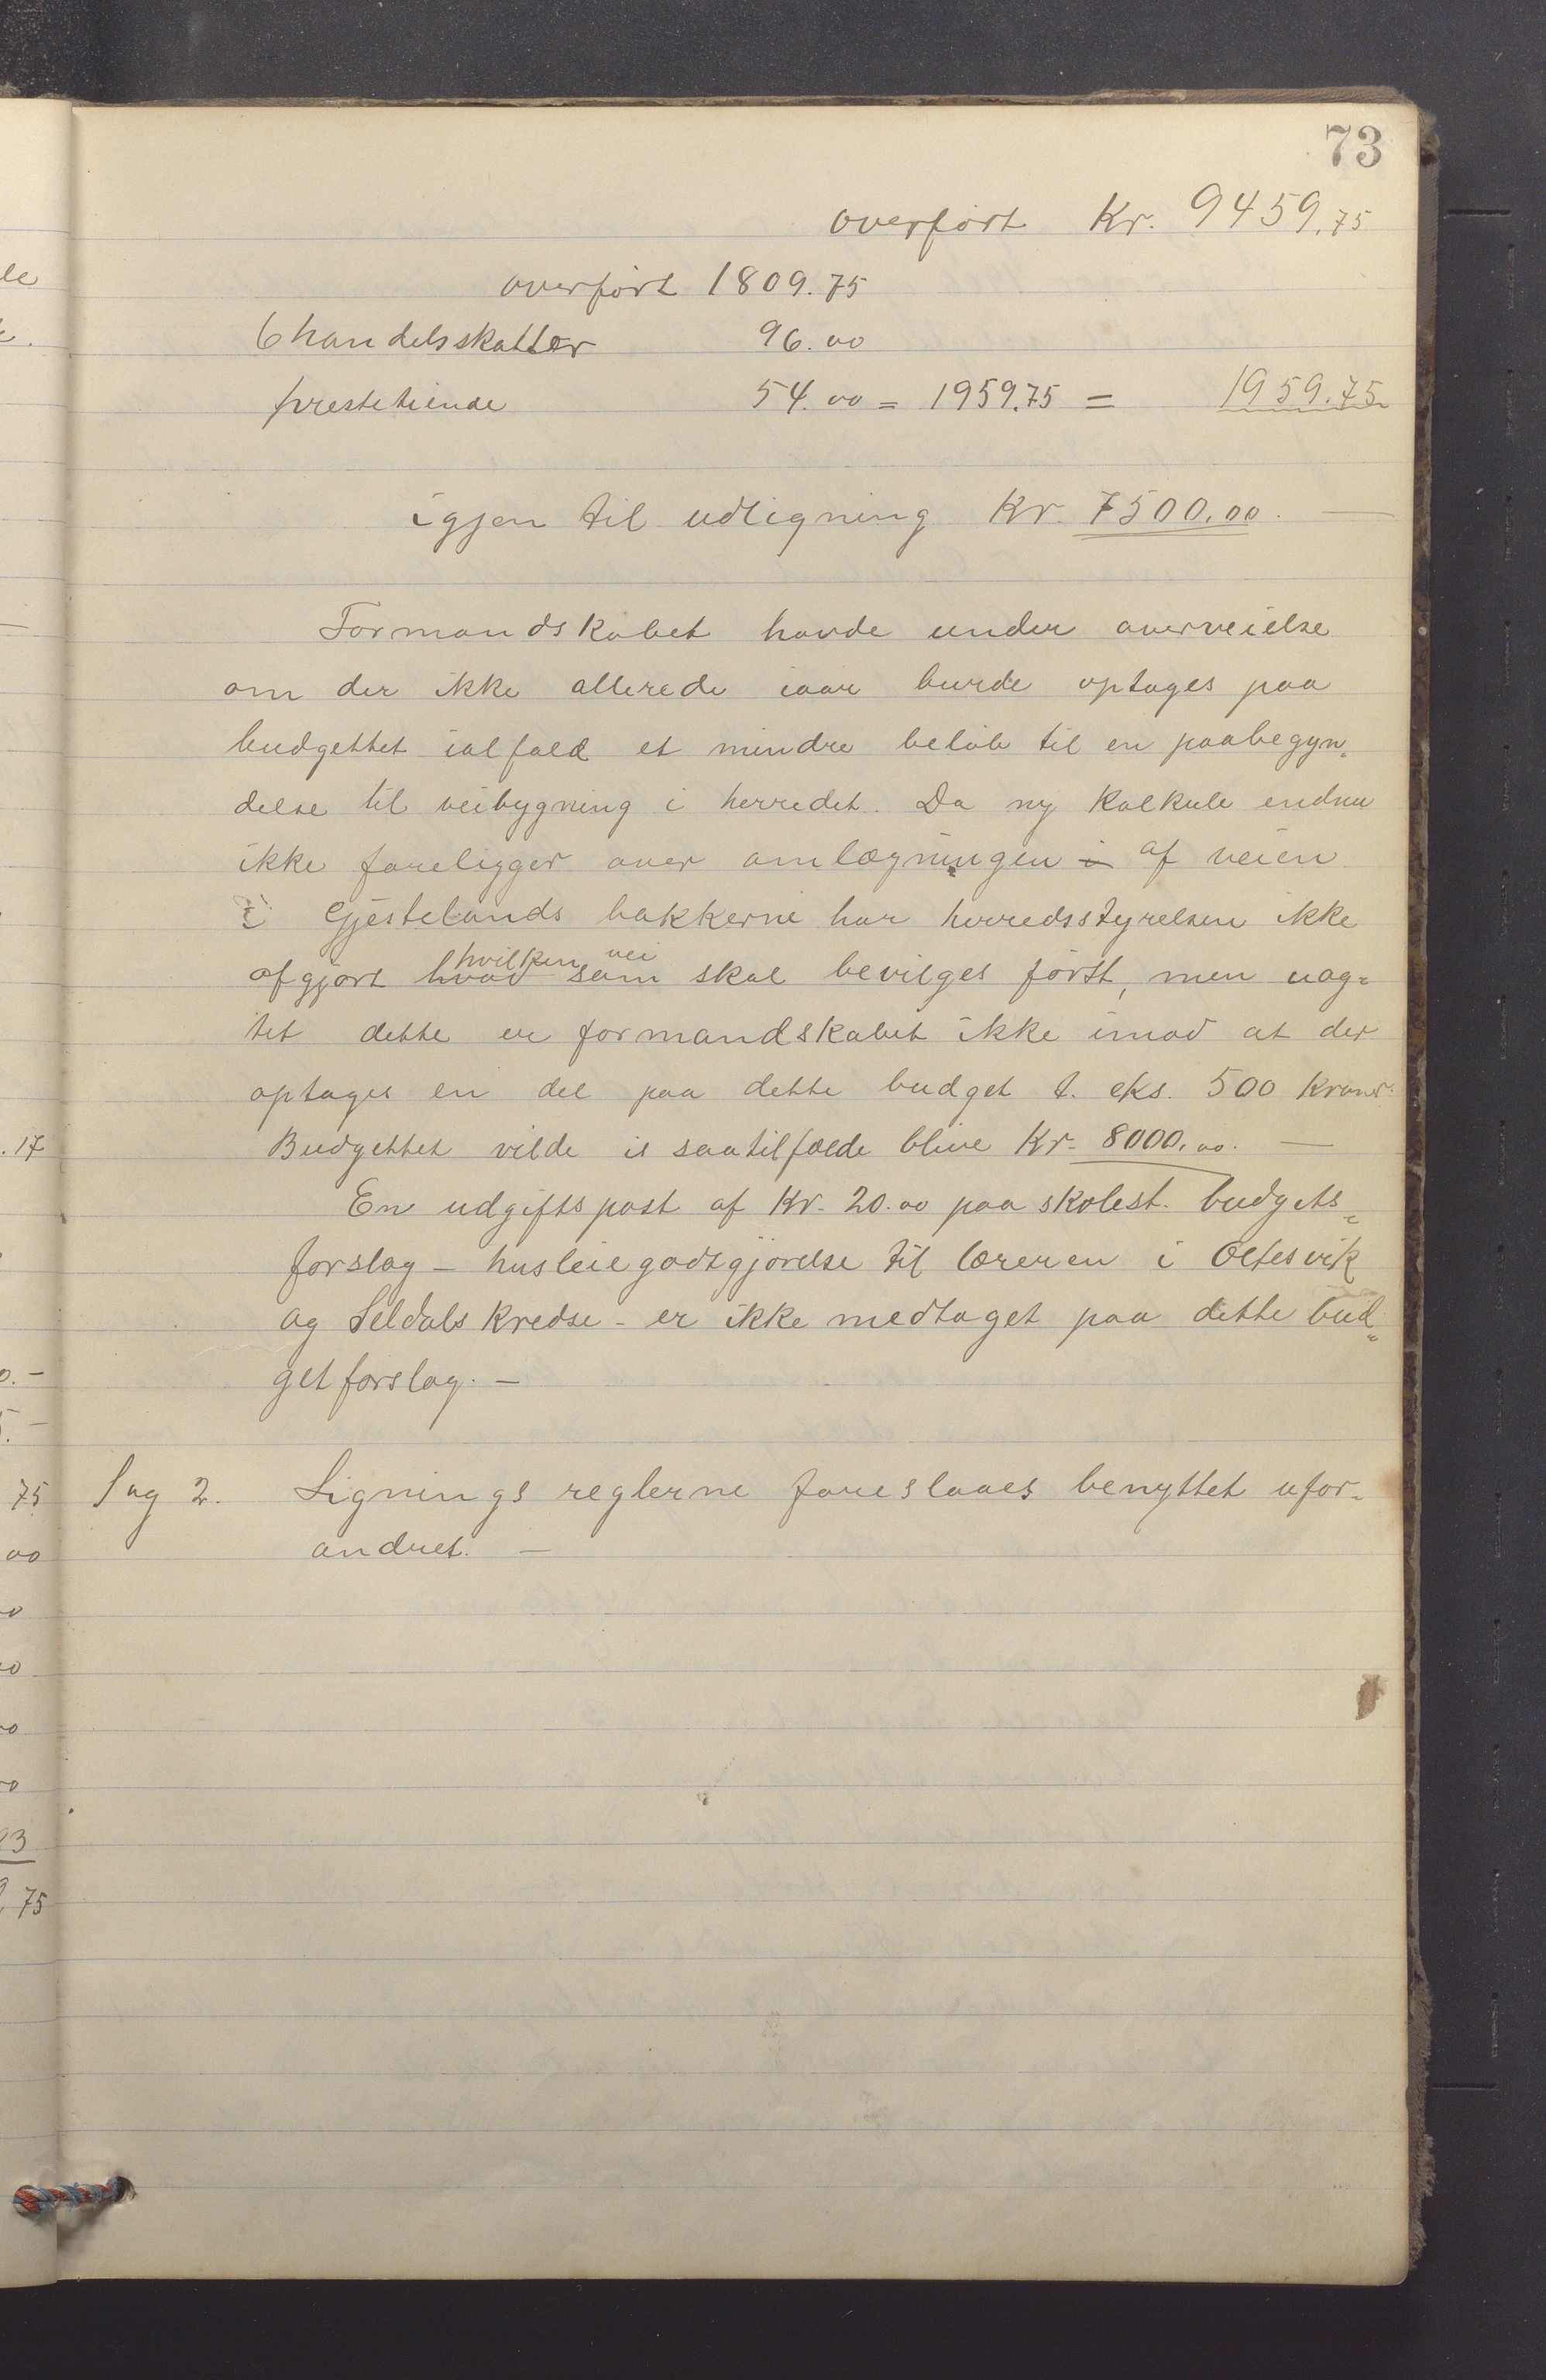 73
overført Kr. 9459.75
overført 1809.75
6 handelsskatter 96.00
prestetiende 54.00 = 1959.75 = 1959.75
igjen til udligning Kr. 7500.00. —
Formandskabet havde under overveielse
om der ikke allerede iaar burde optages paa
budgettet ialfald et mindre beløb til en paabegyn=
delse til veibygning i herredet. Da ny kalkule endnu
ikke foreligger over omlægningen i af veien
i Gjestelands bakkerne har herredsstyrelsen ikke
hvilken vei
afgjort hvad som skal bevilges først, men uag=
tet dette er formandskabet ikke imod at der
optages en del paa dette budget t. eks. 500 kroner.
Budgettet vilde is saatilfælde blive Kr. 8000.00. —
En udgiftspost af Kr. 20.00 paa skolest. budgets=
forslag – husleiegodtgjørelse til læreren i Oltesvik
og Seldals kredse – er ikke medtaget paa dette bud=
getforslag. —
Sag 2. Ligningsreglerne foreslaaes benyttet ufor=
andret. —
le
.17
0.–
5.–
75
00
23
75